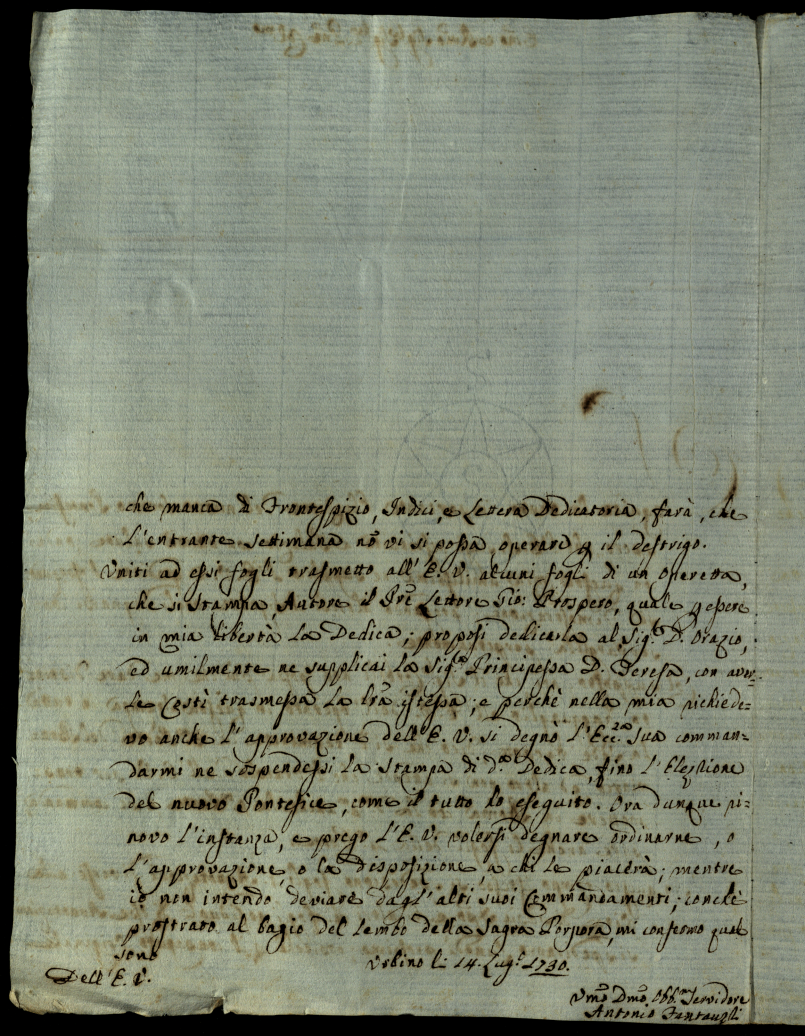 che manca di Frontespizio, Indici, e Lettera Dedicatoria, farà, che
l'entrante settimana nõ vi si possa operare p il destrigo.
Uniti ad essi fogli trasmetto all' E. V. alcuni fogli di un operetta,
che si stampa, Autore il Pre Lettore Gio: Prospero, quale p essere
in mia libertà la Dedica; proposi dedicarla al Sig.r D. Orazio,
ed umilmente ne supplicai la Sig.ra Principessa D. Teresa, con aver-
le costì trasmessa la lrã istessa; e perchè nella mia richiede=
vo anche l'approvazione dell' E. V. si degnò l'Ecc.za Sua comman=
darmi ne sospendessi la stampa di d.a Dedica, fino l'Elezione
del nuovo Pontefice, come il tutto hò eseguito. Ora dunque ri=
novo l'instanza, e prego l'E. V. volersi degnare ordinarne, o
l'approvazione, o la disposizione, a chi le piacerà; mentre
io non intendo deviare dagl' alti suoi Commandamenti; conchè
prostrato al bagio del lembo della Sagra Porpora, mi confermo qual
sono
Urbino li 14. Lug.o 1730.
Dell' E. V.
Umo Dmo Obb.mo Servidore
Antonio Fantauzzi